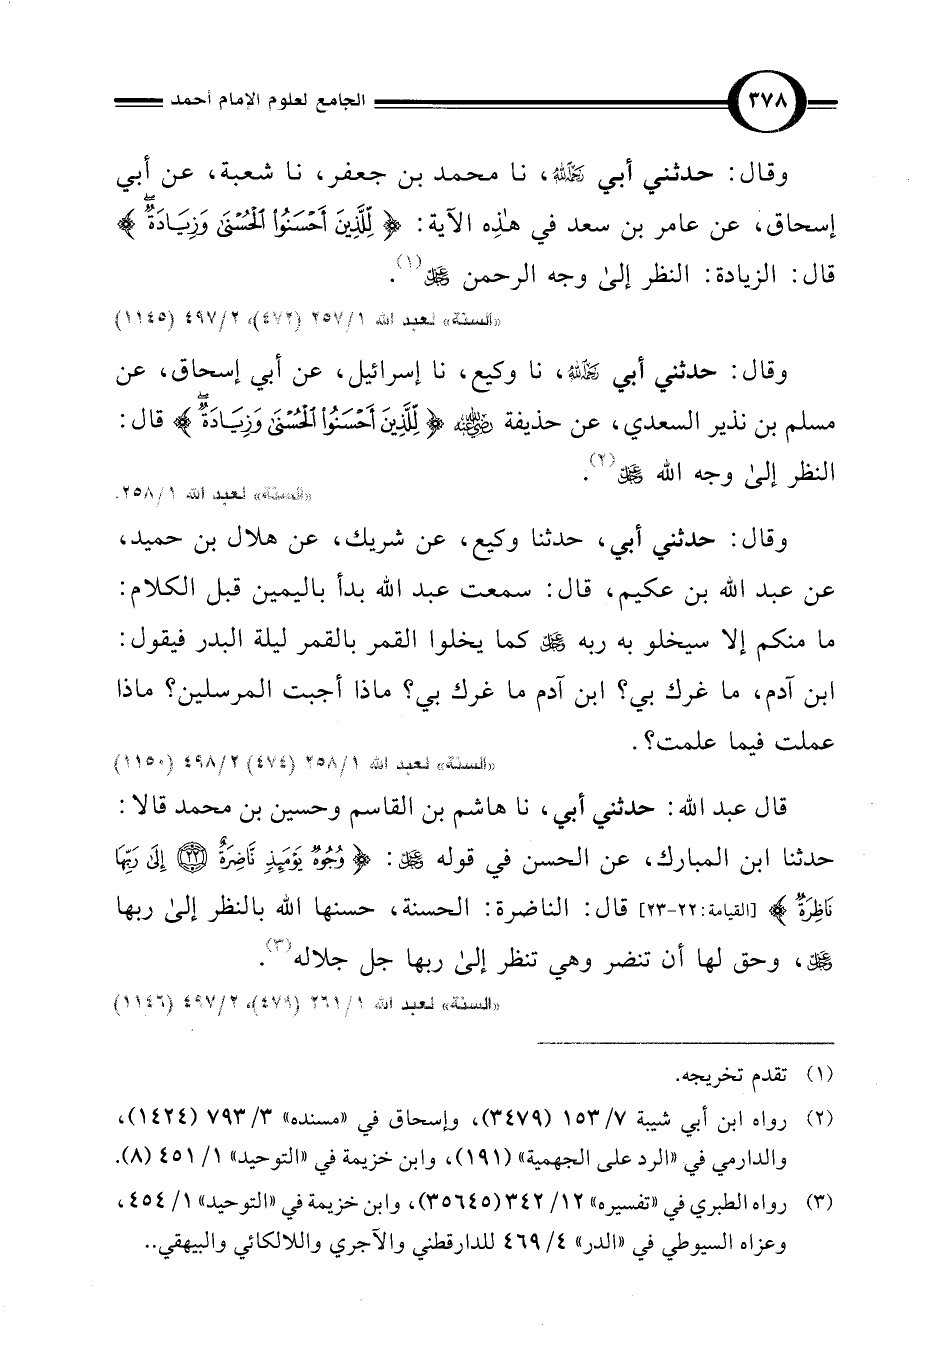 ٣٧٨ الجامع لعلوم الإمام أحمد
وقال: حدثني أبي رَحِمَهُ اللهُ، نا محمد بن جعفر، نا شعبة، عن أبي
إسحاق، عن عامر بن سعد في هذِه الآية: ﴿لِّلَّذِينَ أَحْسَنُوا۟ ٱلْحُسْنَىٰ وَزِيَادَةٌ﴾
قال: الزيادة: النظر إلىٰ وجه الرحمن ﷿(١).
«السنة» لعبد الله ١/٢٥٧ (٤٧٢)، ٢/٤٩٧ (١١٤٥)
وقال: حدثني أبي رَحِمَهُ اللهُ، نا وكيع، نا إسرائيل، عن أبي إسحاق، عن
مسلم بن نذير السعدي، عن حذيفة رضي الله عنه ﴿لِّلَّذِينَ أَحْسَنُوا۟ ٱلْحُسْنَىٰ وَزِيَادَةٌ﴾ قال:
النظر إلىٰ وجه الله ﷿(٢).
«السنة» لعبد الله ١/٢٥٨.
وقال: حدثني أبي، حدثنا وكيع، عن شريك، عن هلال بن حميد،
عن عبد الله بن عكيم، قال: سمعت عبد الله بدأ باليمين قبل الكلام:
ما منكم إلا سيخلو به ربه ﷿ كما يخلوا القمر بالقمر ليلة البدر فيقول:
ابن آدم، ما غرك بي؟ ابن آدم ما غرك بي؟ ماذا أجبت المرسلين؟ ماذا
عملت فيما علمت؟.
«السنة» لعبد الله ١/٢٥٨ (٤٧٤) ٢/٤٩٨ (١١٥٠)
قال عبد الله: حدثني أبي، نا هاشم بن القاسم وحسين بن محمد قالا:
حدثنا ابن المبارك، عن الحسن في قوله ﷿: ﴿وُجُوهٌ يَوْمَئِذٍ نَّاضِرَةٌ ۝٢٢ إِلَىٰ رَبِّهَا
نَاظِرَةٌ﴾ [القيامة: ٢٢-٢٣] قال: الناضرة: الحسنة، حسنها الله بالنظر إلىٰ ربها
﷿، وحق لها أن تنضر وهي تنظر إلىٰ ربها جل جلاله(٣).
«السنة» لعبد الله ١/٢٦١ (٤٧٩)، ٢/٤٩٧ (١١٤٦)
(١) تقدم تخريجه.
(٢) رواه ابن أبي شيبة ٧/١٥٣ (٣٤٧٩)، وإسحاق في «مسنده» ٣/٧٩٣ (١٤٢٤)،
والدارمي في «الرد على الجهمية» (١٩١)، وابن خزيمة في «التوحيد» ١/٤٥١ (٨).
(٣) رواه الطبري في «تفسيره» ١٢/٣٤٢ (٣٥٦٤٥)، وابن خزيمة في «التوحيد» ١/٤٥٤،
وعزاه السيوطي في «الدر» ٤/٤٦٩ للدارقطني والآجري واللالكائي والبيهقي..